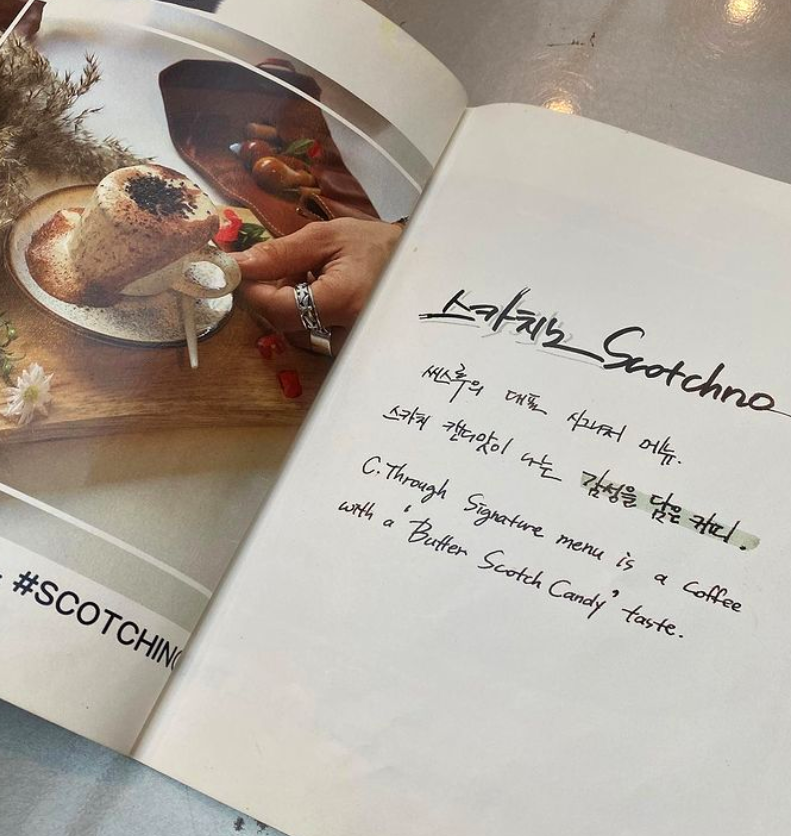 #SCOTCHINO
스카치노 Scotchno
씨스루의 대표 시그니처 메뉴.
스카치 캔디맛이 나는 감성을 담은 커피.
C.Through Signature menu is a coffee
with a "Butter Scotch Candy" taste.